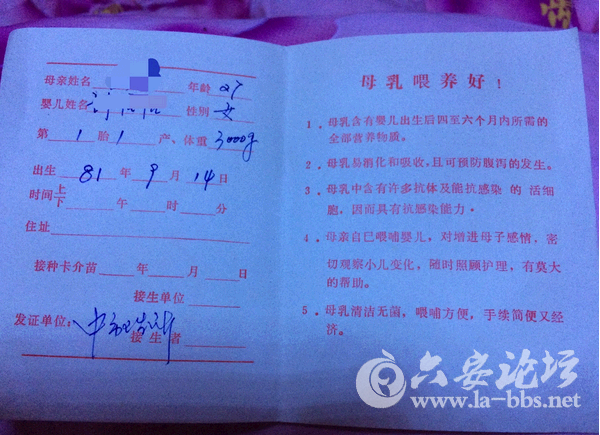 母亲姓名 年龄 27
婴儿姓名 性别 女
第 1 胎 1 产、体重 3000g
出生 81 年 9 月 14 日
时间上下 午 时 分
住址
接种卡介苗 年 月 日
接生单位
发证单位:
接生者
母乳喂养好!
1、母乳含有婴儿出生后四至六个月内所需的
全部营养物质。
2、母乳易消化和吸收,且可预防腹泻的发生。
3、母乳中含有许多抗体及能抗感染 的 活细
胞,因而具有抗感染能力。
4、母亲自己喂哺婴儿,对增进母子感情,密
切观察小儿变化,随时照顾护理,有莫大
的帮助。
5、母乳清洁无菌,喂哺方便,手续简便又经
济。
六安论坛
www.la-bbs.net